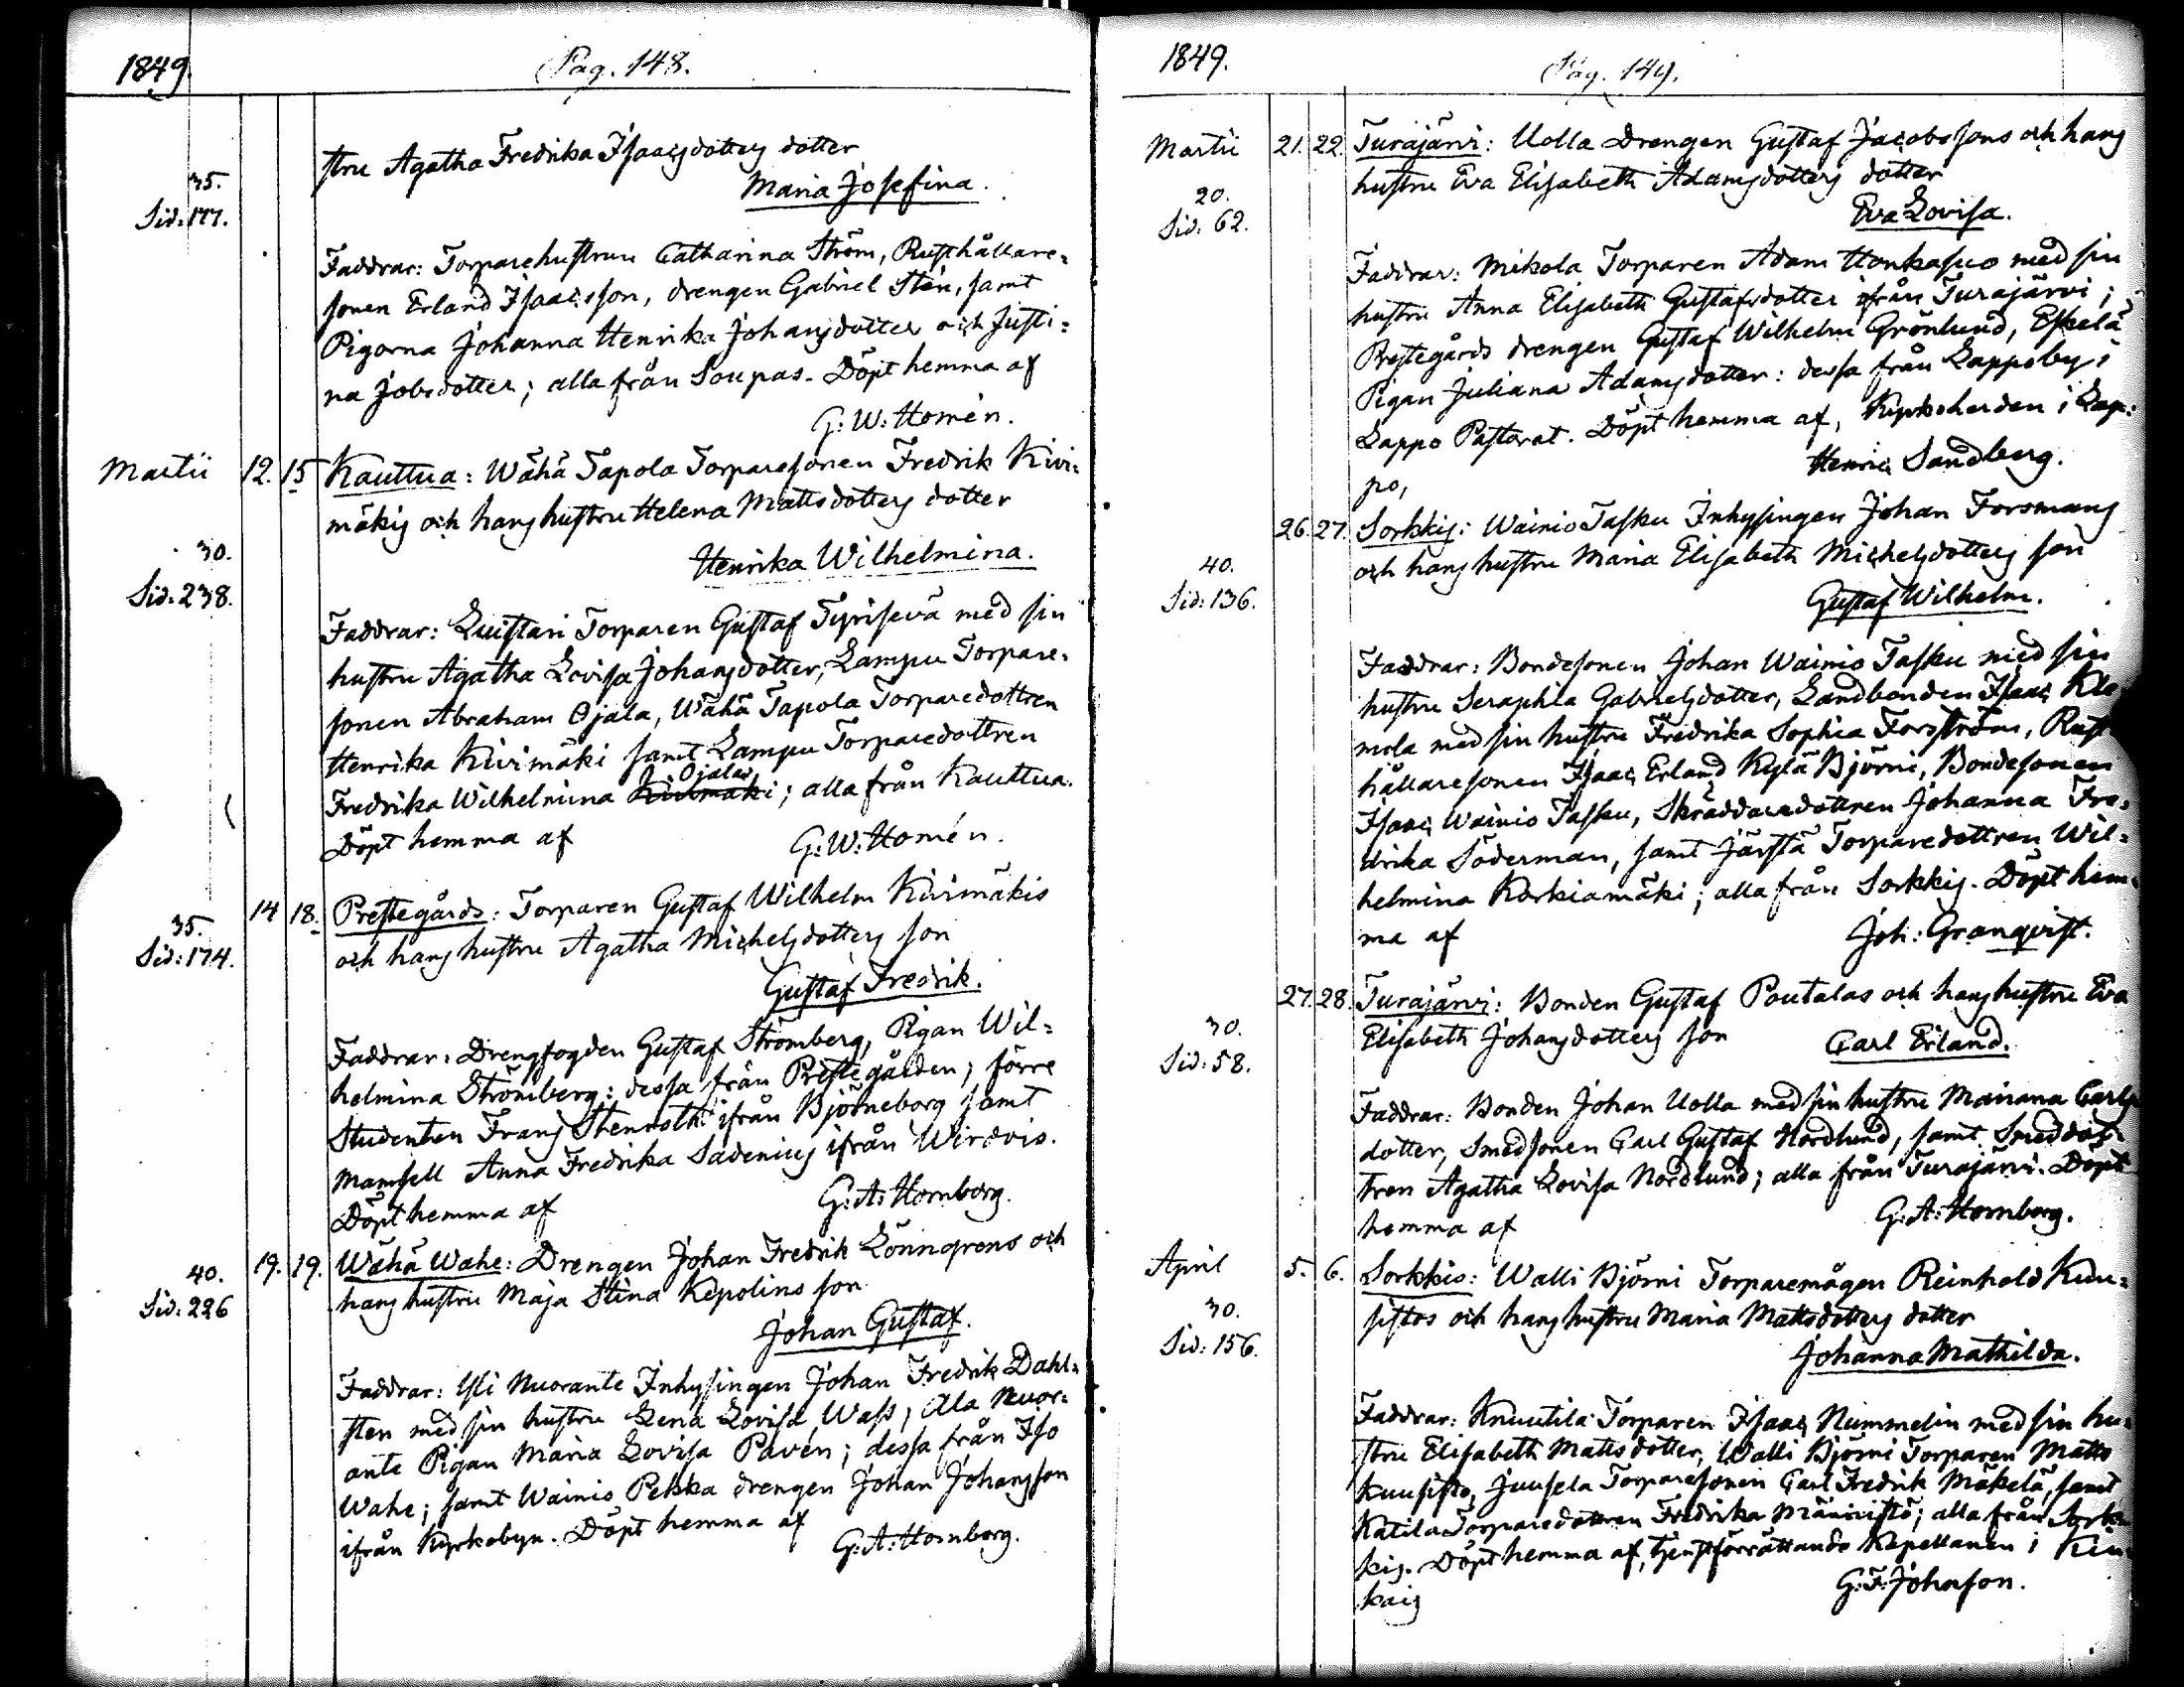 1849. Pag. 148.
stru Agatha Fredrika Isaacsdotters dotter
35. Maria Josefina.
Sid: 177.
Faddrar: Torparehustrun Catharina Ström, Rusthållare-
sonen Erland Isaacsson, drengen Gabriel Stén, samt
Pigorna Johanna Henrika Johansdotter och Justi-
na Jobsdotter; alla från Soupas. Döpt hemma af
G: W: Homén.
Martii 12. 15 Kauttua: Wähä Tapola Torparesonen Fredrik Kivi-
mäkis och hans hustru Helena Mattsdotters dotter
30. Henrika Wilhelmina.
Sid: 238.
Faddrar: Luistari Torparen Gustaf Tyrisevä med sin
hustru Agatha Lovisa Johansdotter, Lampu Torpare-
sonen Abraham Ojala, Wähä Tapola Torparedottren
Henrika Kivimäki samt Lampu Torparedottren
Ojala
Fredrika Wilhelmina Kivimäki; alla från Kauttua.
Döpt hemma af G: W: Homén.
14 18. Prestegårds: Torparen Gustaf Wilhelm Kivimäkis
35. och hans hustru Agatha Michelsdotters son
Sid: 174. Gustaf Fredrik.
Faddrar: Drengfogden Gustaf Strömberg, Pigan Wil-
helmina Strömberg: dessa från Prestegården; förre
Studenten Frans Stenroth ifrån Björneborg samt
Mamsell Anna Fredrika Sadenius ifrån Wirdvis.
Döpt hemma af G: A: Hornborg.
19. 19. Wähä Wahe: Drengen Johan Fredrik Lönngrens och
40. hans hustru Maja Stina Kepolins son
Sid: 226 Johan Gustaf.
Faddrar: Yli Nuorante Inhysingen Johan Fredrik Dahl-
sten med sin hustru Lena Lovisa Wass; Ala Nuor-
ante Pigan Maria Lovisa Pavén; dessa från Iso
Wahe; samt Wainio Pelska drengen Johan Johansson
ifrån Kyrkobyn. Döpt hemma af
G: A: Hornborg.
1849. Pag. 149.
Martii 21. 22. Turajärvi: Uolla Drengen Gustaf Jacobssons och hans
20. hustru Eva Elisabeth Adamsdotters dotter
Sid: 62. Eva Lovisa.
Faddrar: Mikola Torparen Adam Honkasuo med sin
hustru Anna Elisabeth Gustafsdotter ifrån Turajärvi;
Prestegårds drengen Gustaf Wilhelm Grönlund, Eskelä
Pigan Juliana Adamsdotter: dessa från Lappoby i
Lappo Pastorat. Döpt hemma af, Kyrkoherden i Lap-
po, Henric Sandberg.
26. 27. Sorkkis: Wainio Tasku Inhysingen Johan Forsmans
40. och hans hustru Maria Elisabeth Michelsdotters son
Sid: 136. Gustaf Wilhelm.
Faddrar: Bondesonen Johan Wainio Tasku med sin
hustru Seraphia Gabrielsdotter, Landbonden Isaac Kle
mola med sin hustru Fredrika Sophia Forsström, Rust
hållaresonen Isaac Erland Kylä Björni, Bondesonen
Isaac Wainio Tasku, Skräddaredottren Johanna Fre-
drika Söderman, samt Järstä Torparedottren Wil-
helmina Korkiamäki; alla från Sorkkis. Döpt hem-
ma af Joh: Granqvist.
27. 28. Turajärvi: Bonden Gustaf Poutalas och hans hustru Eva
30. Elisabeth Johansdotters son Carl Erland.
Sid: 58.
Faddrar: Bonden Johan Uolla med sin hustru Mariana Carls
dotter, Smedsonen Carl Gustaf Nordlund, samt Smeddot-
tren Agatha Lovisa Nordlund; alla från Turajärvi. Döpt
hemma af G: A: Hornborg.
April 5. 6. Sorkkis: Walli Björni Torparemågen Reinhold Kuu-
30. sistos och hans hustru Maria Mattsdotters dotter
Sid: 156. Johanna Mathilda.
Faddrar: Knuutila Torparen Isaac Nummelin med sin hu-
stru Elisabeth Mattsdotter, Walli Björni Torparen Matts
Kuusisto, Juusela Torparesonen Carl Fredrik Mäkelä, samt
Katila Torparedottren Fredrika Männistö; alla från Sork-
kis. Döpt hemma af, tjenstförrättande Kapellanen i Kiu-
kais G: F: Johnsson.